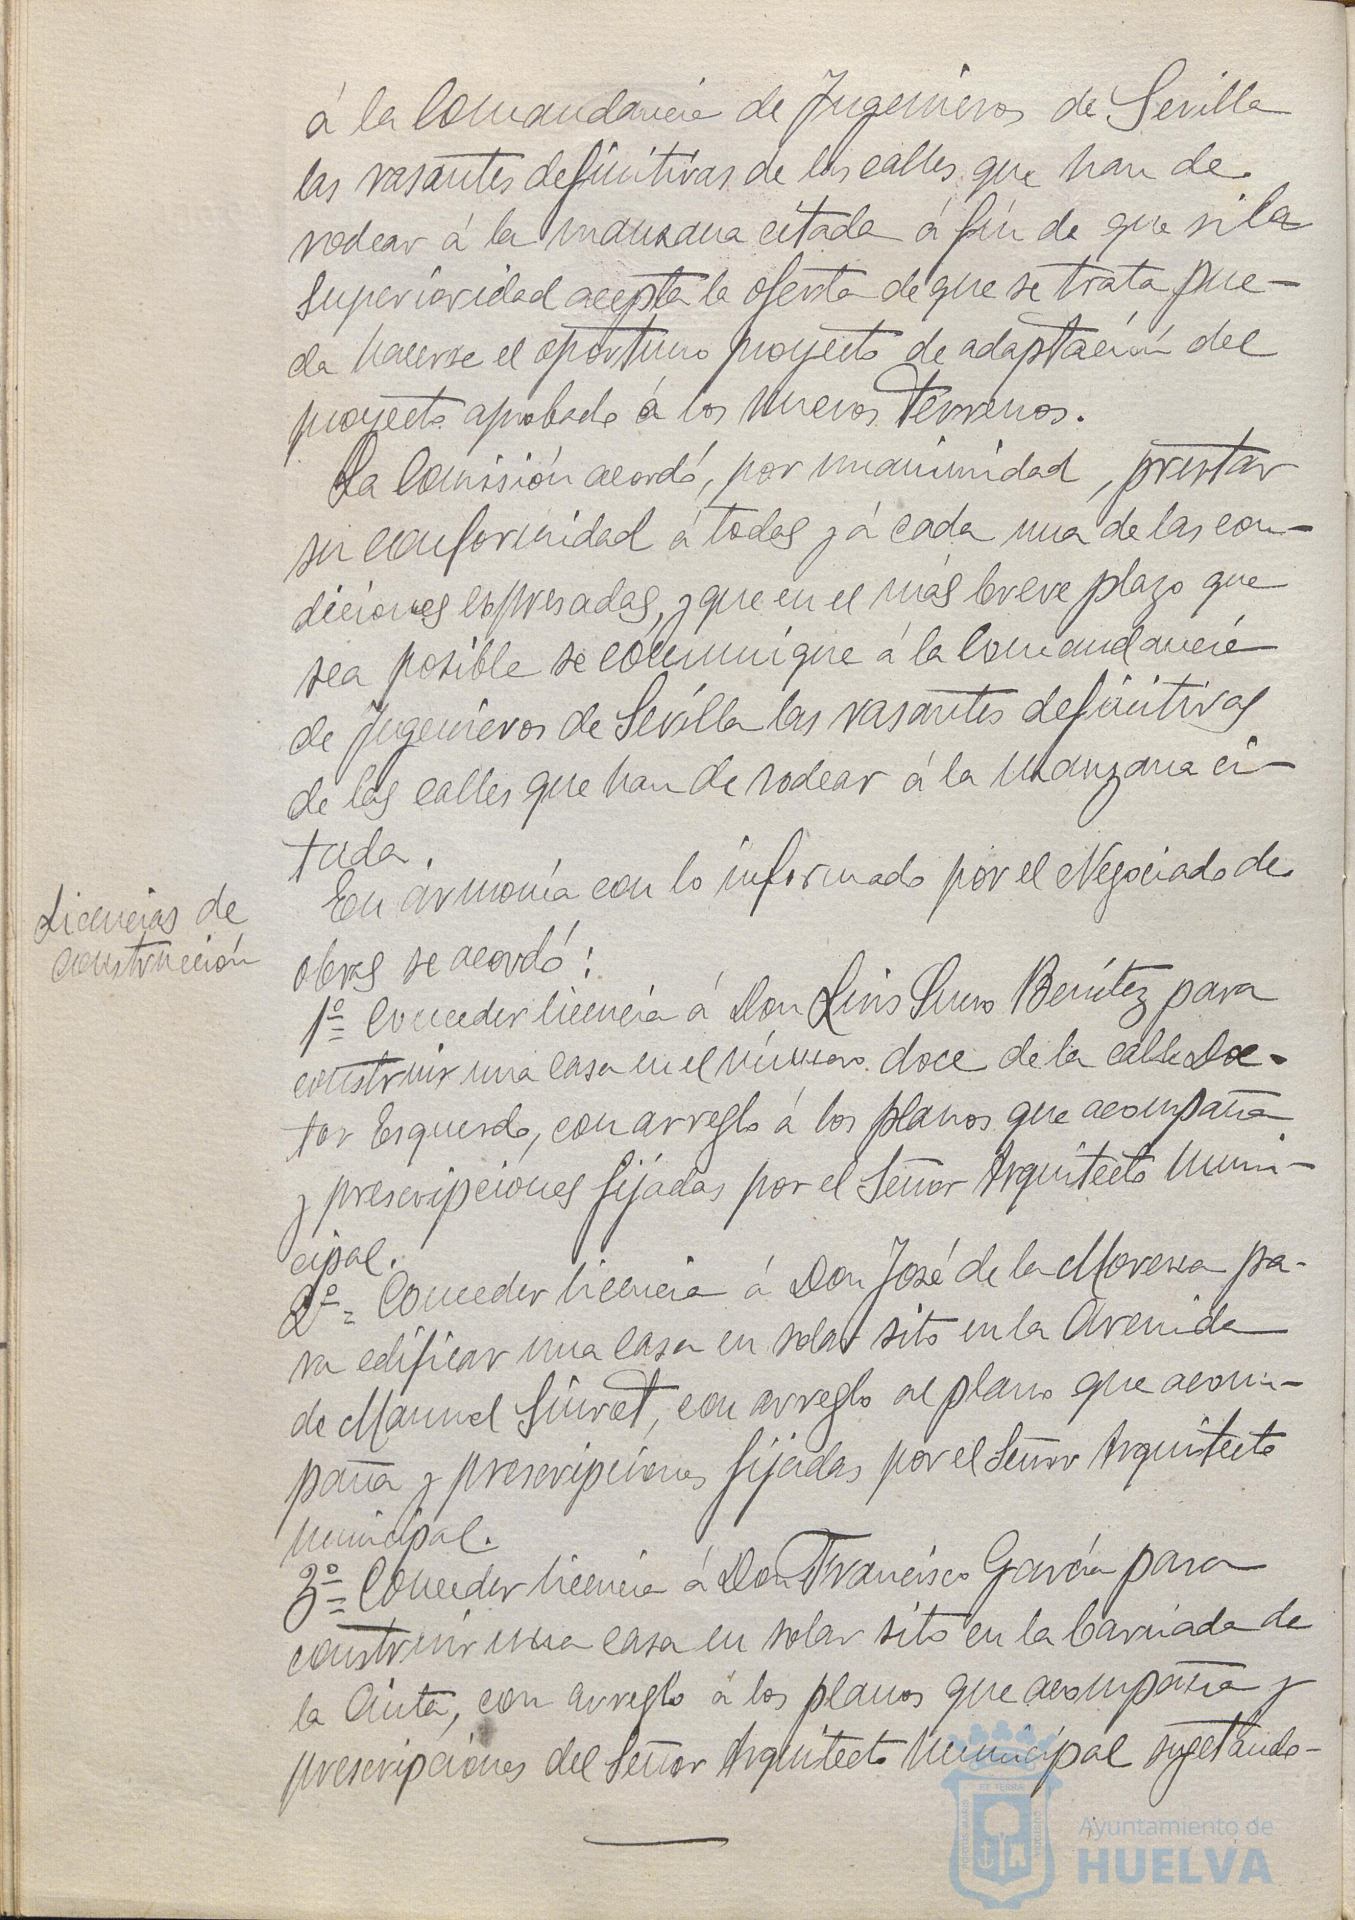 á la Comandancia de Ingenieros de Sevilla
las rasantes definitivas de las calles que han de
rodear á la manzana citada á fin de que si la
Superioridad acepta la oferta de que se trata pue-
da hacerse el oportuno proyecto de adaptación del
proyecto aprobado á los nuevos terrenos.
La Comisión acordó, por unanimidad, prestar
su conformidad á todas y á cada una de las con-
diciones expresadas, y que en el más breve plazo que
sea posible se comunique á la Comandancia
de Ingenieros de Sevilla las rasantes definitivas
de las calles que han de rodear á la manzana ci-
tada.
Licencias de
construcción
En armonía con lo informado por el Negociado de
obras se acordó:
1º = Conceder licencia á Don Luis Suero Benítez para
construir una casa en el número doce de la calle Doc-
tor Esquerdo, con arreglo á los planos que acompaña
y prescripciones fijadas por el Señor Arquitecto Muni-
cipal.
2º = Conceder licencia á Don José de la Morena pa-
ra edificar una casa en solar sito en la Avenida
de Manuel Siurot, con arreglo al plano que acom-
paña y prescripciones fijadas por el Señor Arquitecto
Municipal.
3º = Conceder licencia á Don Francisco García para
construir una casa en solar sito en la barriada de
la Cinta, con arreglo á los planos que acompaña y
prescripciones del Señor Arquitecto Municipal sugetando-
Ayuntamiento de
HUELVA